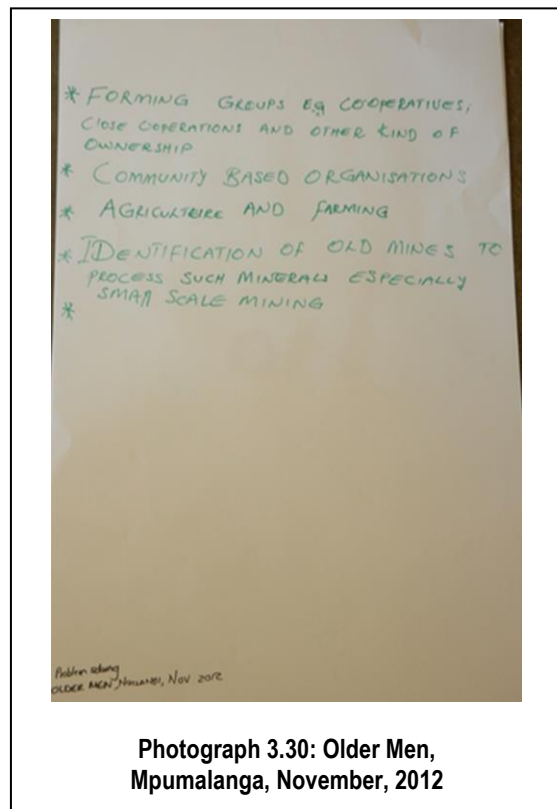 * FORMING GROUPS Eg COOPERATIVES,
CLOSE COOPERATIONS AND OTHER KIND OF
OWNERSHIP
* COMMUNITY BASED ORGANISATIONS
* AGRICULTURE AND FARMING
* IDENTIFICATION OF OLD MINES TO
PROCESS SUCH MINERALS ESPECIALLY
SMALL SCALE MINING
*
Problem solving
OLDER MEN, Nov 2012
Photograph 3.30: Older Men,
Mpumalanga, November, 2012